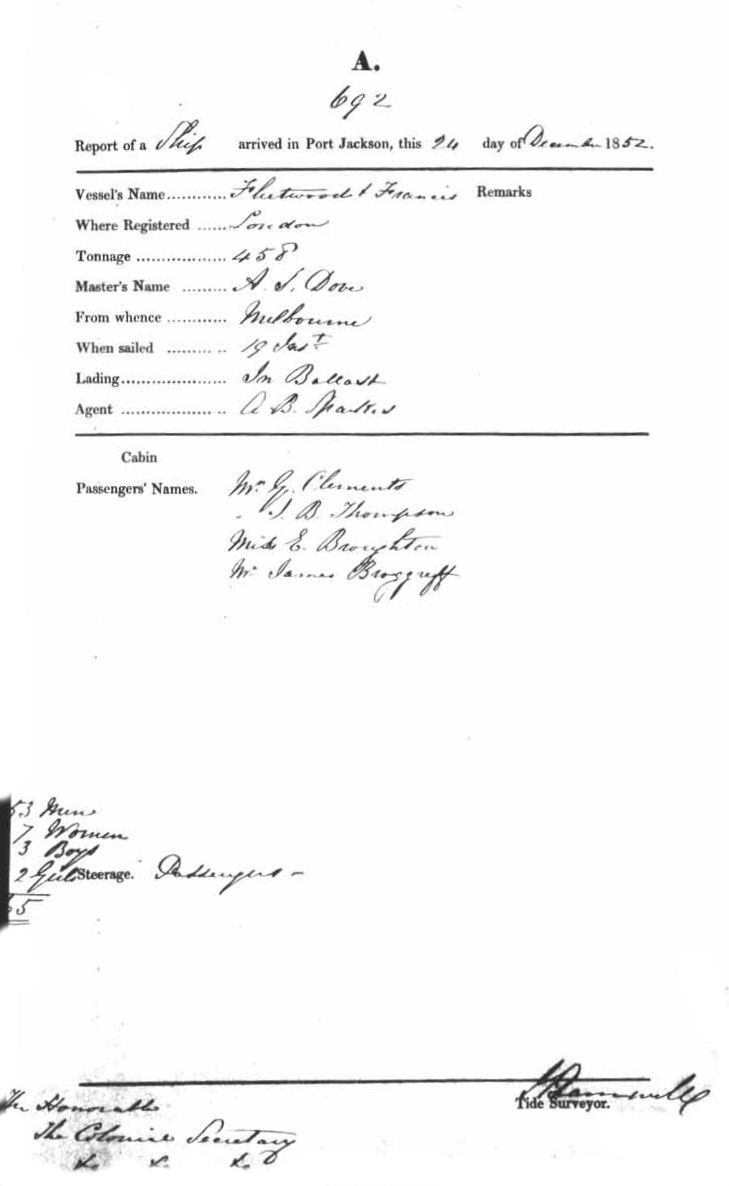 A.
692
Report of a Ship arrived in Port Jackson, this 24 day of December 1852.
Vessel's Name............ Fleetwood & Francis Remarks
Where Registered ...... London
Tonnage .................. 458
Master's Name ......... A. S. Dove
From whence ............ Melbourne
When sailed ......... .. 19 Inst
Lading..................... In Ballast
Agent ................... .. A B. Sparkes
Cabin
Passengers' Names. Mr. G. Clements
" J. B. Thompson
Miss E. Broughton
Mr James
53 Men
7 Women
3 Boys
2 Girls Steerage. Passengers -
65
Tide Surveyor.
The Honorable
The Colonial Secretary
&. &. &c